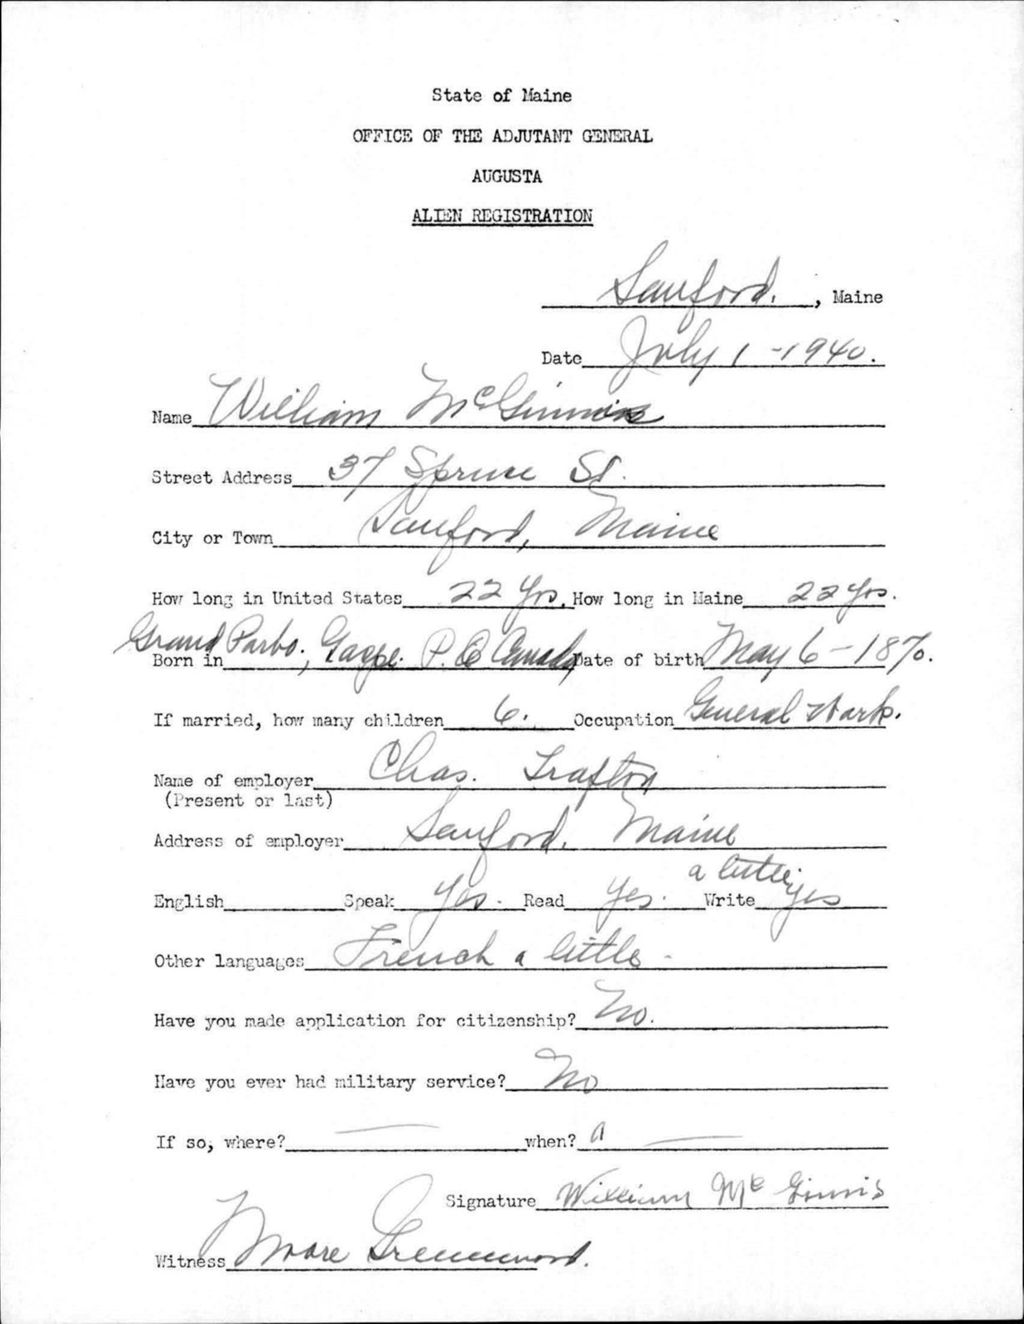 State of Maine
OFFICE OF THE ADJUTANT GENERAL
AUGUSTA
ALIEN REGISTRATION
Sanford, , Maine
Date July 1 - 1940.
Name William McGinnis
Street Address 37 Spruce St.
City or Town Sanford, Maine
How long in United States 22 Yrs. How long in Maine 22 Yrs.
Born in Grand Pabo., Gaspe. P.Q Canada Date of birth May 6 - 1870.
If married, how many children 6. Occupation General Work.
Name of employer Chas. Trafton
(Present or last)
Address of employer Sanford, Maine
English Speak Yes. Read Yes. Write a little, yes
Other languages French a little -
Have you made application for citizenship? No.
Have you ever had military service? No
If so, where? — when? —
Signature William McGinnis
Witness Moore Greenwood.